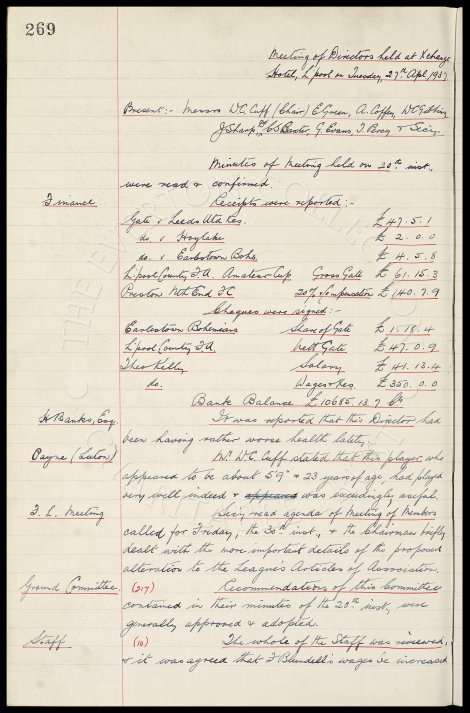 269
Meeting of Directors held at Xchange
Hotel, L'pool on Tuesday, 27th Apl 1937
Present:- Messrs W.C. Cuff (Chair) E. Green, A. Coffey, W.C. Gibbins
J. Sharp, C.S. Baxter, G. Evans, T. Percy & Secy.
Minutes of Meeting held on 20th inst.,
were read & confirmed.
Finance Receipts were reported:-
Gate v Leeds Utd Res. £47.5.1
do. v Hoylake £2.0.0
do. v Earlestown Bohs. £4.5.8
L'pool County F.A. Amateur Cup Gross Gate £61.15.3
Preston Nth End FC 20% & Compensation £140.7.9
Cheques were signed:-
Earlestown Bohemians Share of Gate £1.18.4
L'pool County F.A. Nett Gate £47.0.9
Theo Kelly Salary £41.13.4
do. Wages & Fees £350.0.0
Bank Balance £10685.13.7 Cr.
H. Banks, Esq. It was reported that this Director had
been having rather worse health lately.
Payne (Luton) Mr. W.C. Cuff stated that this player who
appeared to be about 5'9" & 23 years of age, had played
very well indeed & appeared was exceedingly useful.
F.L. Meeting Secy. read agenda of Meeting of Members
called for Friday, the 30th inst., & the Chairman briefly
dealt with the more important details of the proposed
alteration to the League's Articles of Association.
Ground Committee. (217) Recommendations of this Committee
contained in their minutes of the 23rd inst., were
generally approved & adopted.
Staff (10) The whole of the Staff was reviewed,
& it was agreed that F. Blundell's wages be increased